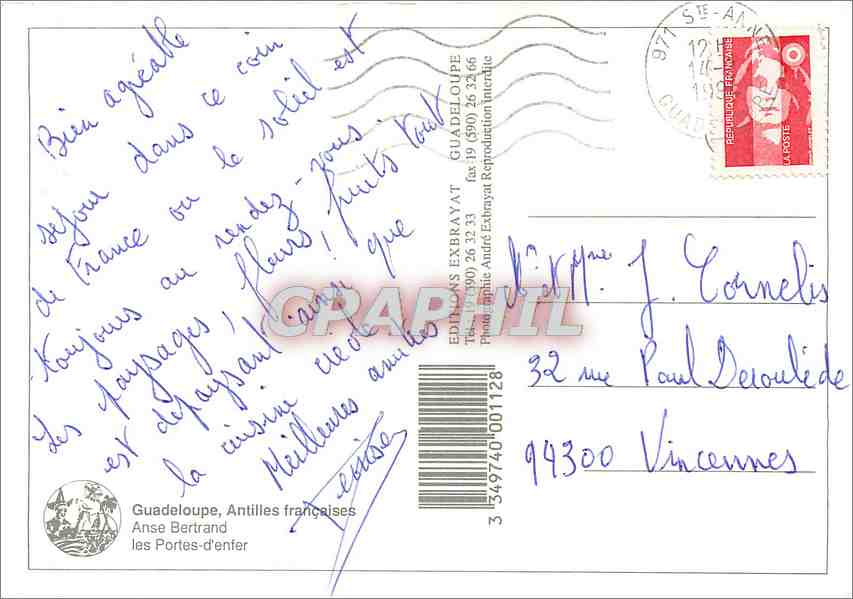 Bien agréable
sejour dans ce coin
de France ou le soleil est
toujours au rendez-vous.
Les paysages, fleurs, fruits tout
est depaysant ainsi que
la cuisine
Meilleures amitiés
Guadeloupe, Antilles françaises
Anse Bertrand
les Portes-d'enfer
EDITIONS EXBRAYAT GUADELOUPE
Tél. 19 (590) 26 32 33 fax 19 (590) 26 32 66
Photographie André Exbrayat Reproduction interdite
3 349740 001128
CPAPHIL
971 STE-ANNE
GUAD
RÉPUBLIQUE FRANÇAISE
LA POSTE
Mr et Mme J. Cornelis
32 rue Paul Deroulède
94300 Vincennes